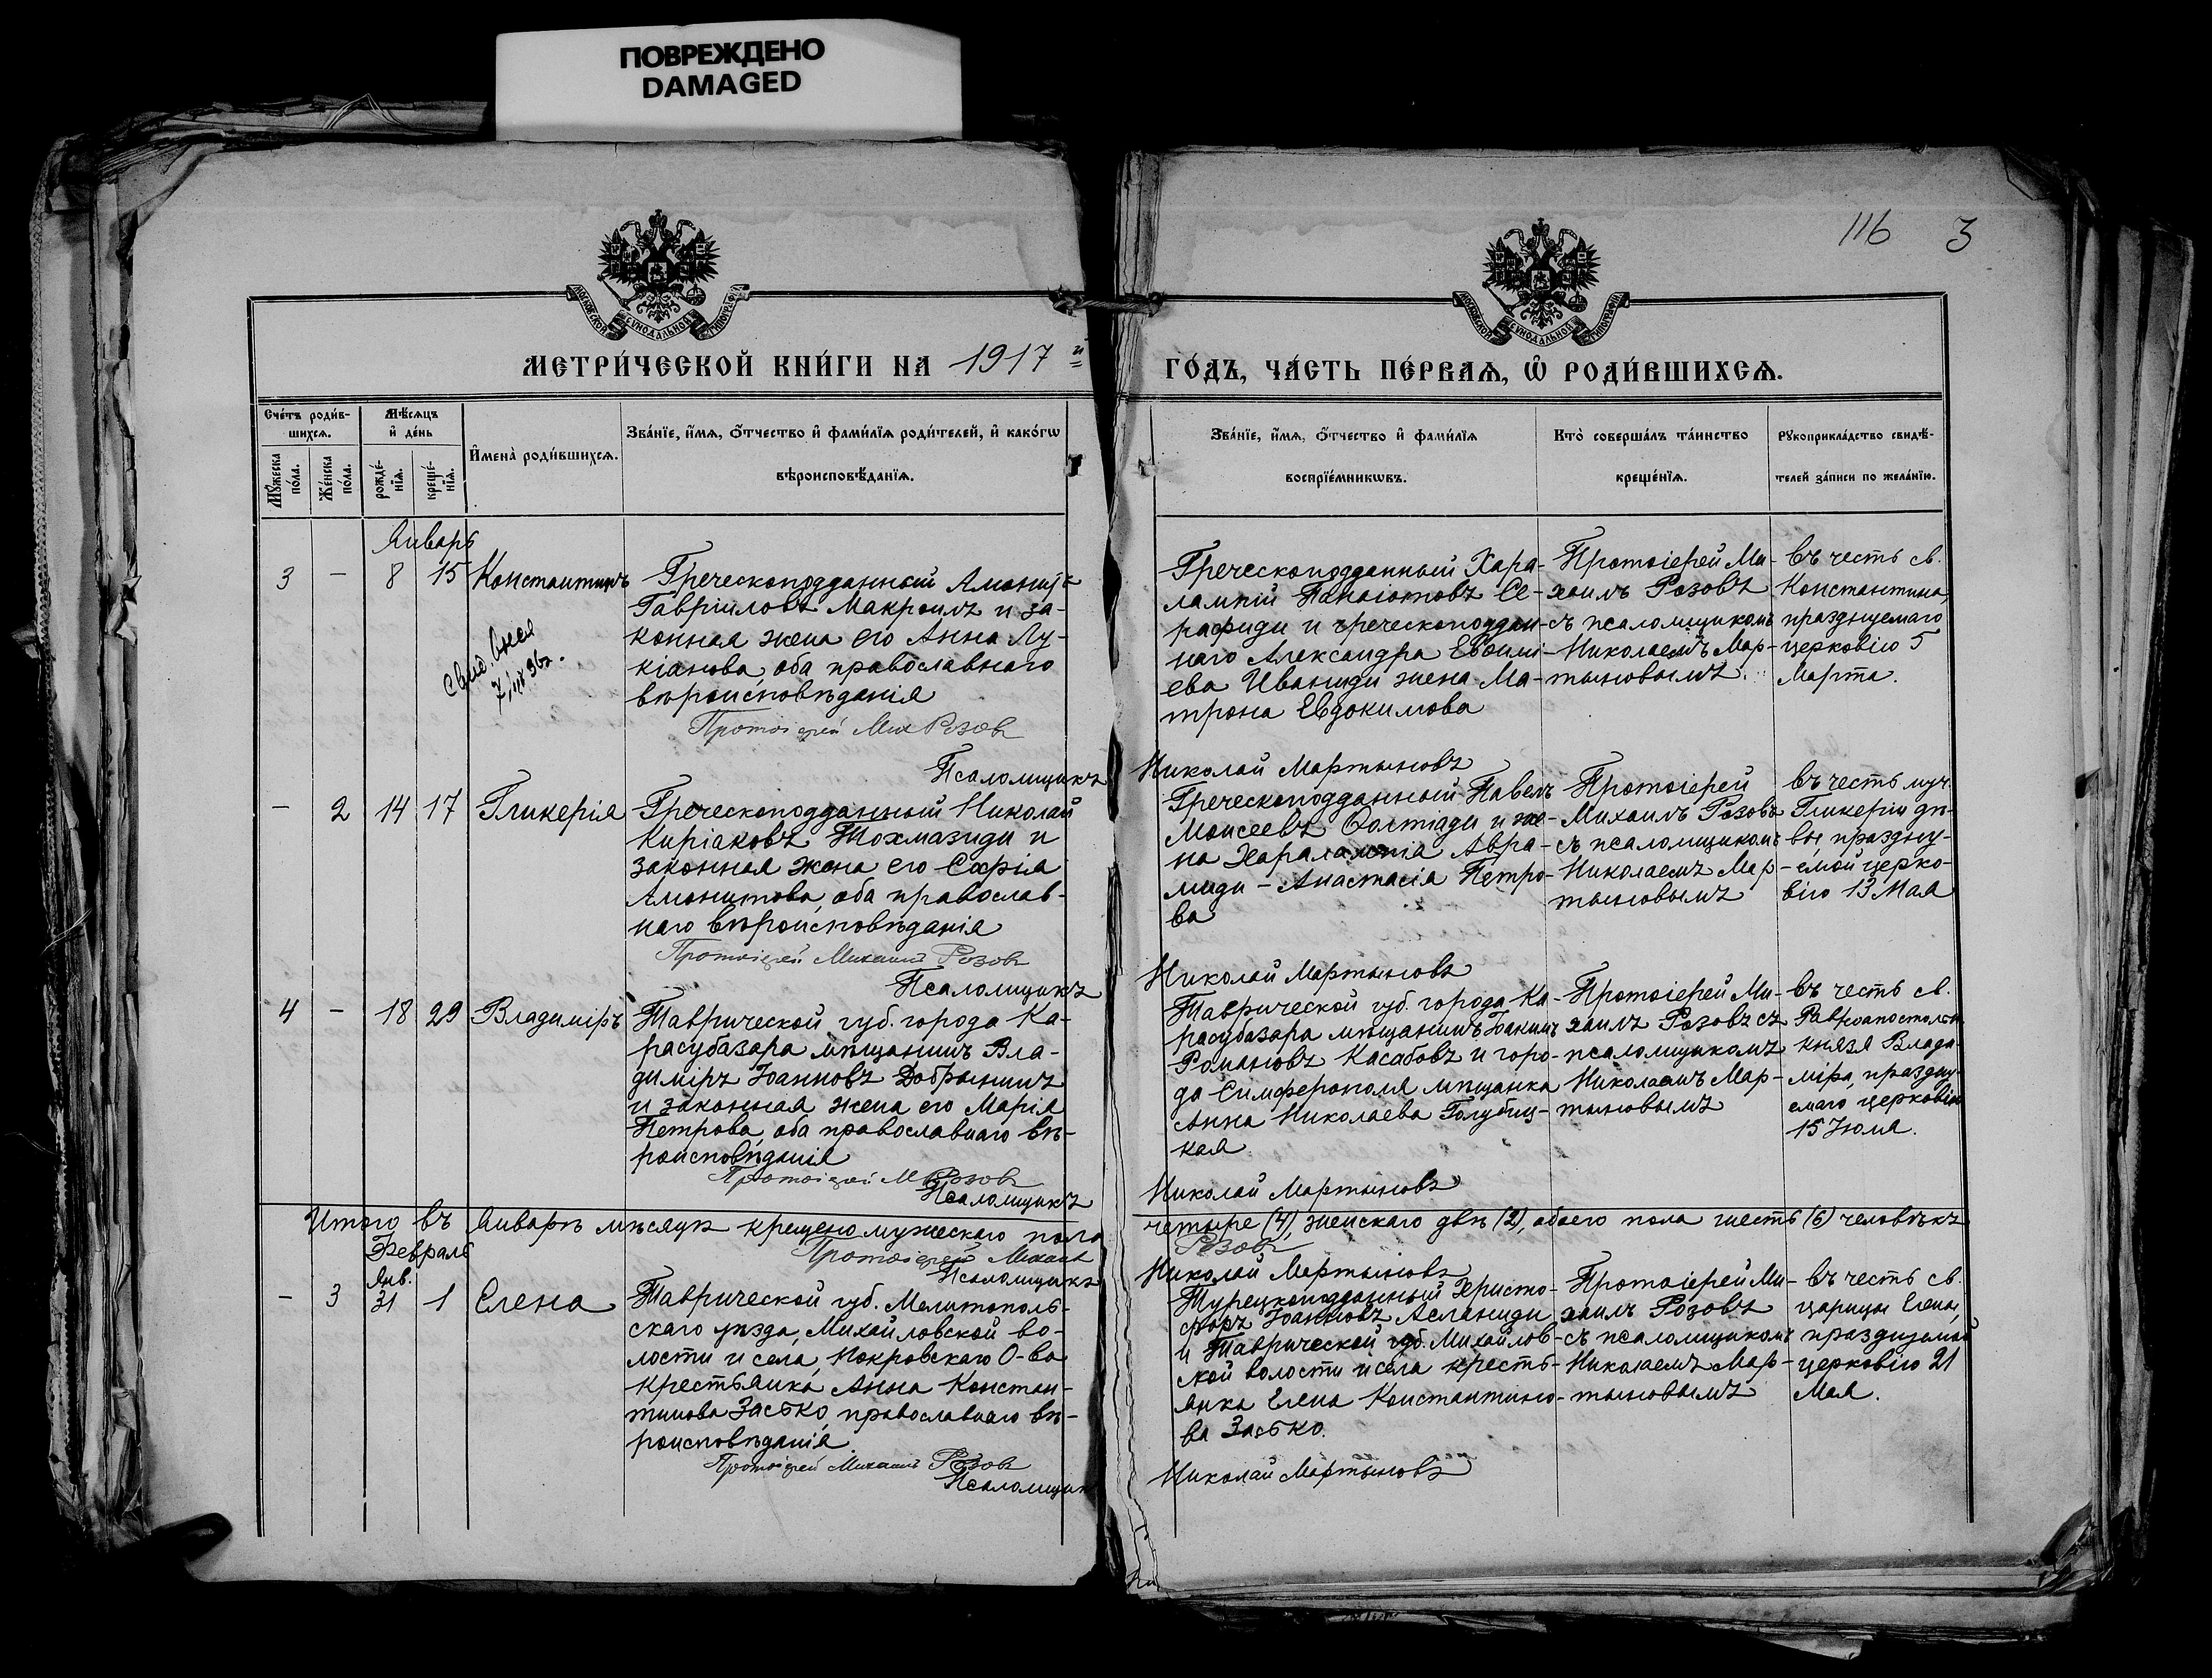 ПОВРЕЖДЕНО
DAMAGED
116 3
МОСКОВСКОЙ СѴНОДАЛЬНОЙ ТИПОГРАФІИ
МОСКОВСКОЙ СѴНОДАЛЬНОЙ ТИПОГРАФІИ
МЕТРИ́ЧЕСКОЙ КНИ́ГИ НА 1917 й
ГО́ДЪ, ЧА́СТЬ ПЕ́РВАѦ, Ѡ҆ РОДИ́ВШИХСѦ.
Сче́тъ роди́в-
шихсѧ.
Мѣ́сѧцъ
и҆ де́нь
Мꙋ́жеска
по́ла.
Же́нска
по́ла.
рожде́-
нїѧ.
креще́-
нїѧ.
И҆мена̀ роди́вшихсѧ.
Зва́нїе, и҆́мѧ, ѻ҆́тчество и҆ фами́лїѧ роди́телей, и҆ како́гѡ
вѣроисповѣ́данїѧ.
Зва́нїе, и҆́мѧ, ѻ҆́тчество и҆ фами́лїѧ
воспрїе́мникѡвъ.
Кто̀ соверша́лъ та́инство
креще́нїѧ.
Рꙋкоприкла́дство свидѣ́-
телей за́писи по жела́нїю.
Январь
3 - 8 15 Константинъ
Греческоподданный
Гавріиловъ Макроилъ и за-
конная жена его Анна Лу-
кіанова, оба православнаго
вѣроисповѣданія
Протоіерей Мих Розовъ
Псаломщикъ
Греческоподданный Хара-
лампій Панаіотовъ Се-
рафиди и греческоподдан-
наго Александра Евфими-
ева Иваниди жена Ма-
трона Евдокимова
Николай Мартыновъ
Протоіерей Ми-
хаилъ Розовъ
съ псаломщикомъ
Николаемъ Мар-
тыновымъ.
въ честь св.
Константина,
празднуемаго
церковію 5
Марта.
- 2 14 17 Гликерія
Греческоподданный Николай
Киріаковъ Тохмазиди и
законная жена его Софія
Амонитова, оба православ-
наго вѣроисповѣданія
Протоіерей Михаилъ Розовъ
Псаломщикъ
Греческоподданный Павелъ
Моисеевъ и же-
на Харалампія Авра-
миди - Анастасія Петро-
ва
Николай Мартыновъ
Протоіерей
Михаилъ Розовъ
съ псаломщикомъ
Николаемъ Мар-
тыновымъ
въ честь муч.
Гликеріи дѣ-
вы, праздну-
емой церко-
вію 13 Мая
4 - 18 29 Владиміръ
Таврической губ. города Ка-
расубазара мѣщанинъ Вла-
диміръ Іоанновъ Добрынинъ
и законная жена его Марія
Петрова, оба православнаго вѣ-
роисповѣданія
Протоіерей М Розовъ
Псаломщикъ
Таврической губ. города Ка-
расубазара мѣщанинъ Іоакимъ
Романовъ Касабовъ и горо-
да Симферополя мѣщанка
Анна Николаева Голубиц-
кая
Николай Мартыновъ
Протоіерей Ми-
хаилъ Розовъ съ
псаломщикомъ
Николаемъ Мар-
тыновымъ
въ честь св.
Равноапостольн.
князя Влади-
міра, праздну-
емаго церковію
15 Іюля.
Итого въ Январѣ мѣсяцѣ крещено мужескаго пола
четыре (4), женскаго двѣ (2), обоего пола шесть (6) человѣкъ
Протоіерей Михаилъ
Розовъ
Псаломщикъ
Николай Мартыновъ
Февраль
Янв.
- 3 31 1 Елена
Таврической губ. Мелитополь-
скаго уѣзда, Михайловской во-
лости и села, Покровскаго О-ва
крестьянка, Анна Констан-
тинова Засько, православнаго вѣ-
роисповѣданія
Протоіерей Михаилъ Розовъ
Псаломщикъ
Турецкоподданный Христо-
форъ Іоанновъ Асланиди
и Таврической губ. Михайлов-
ской волости и села кресть-
янка Елена Константино-
ва Засько.
Николай Мартыновъ
Протоіерей Ми-
хаилъ Розовъ
съ псаломщикомъ
Николаемъ Мар-
тыновымъ
въ честь св.
царицы Елены,
празднуемой
церковію 21
Мая.